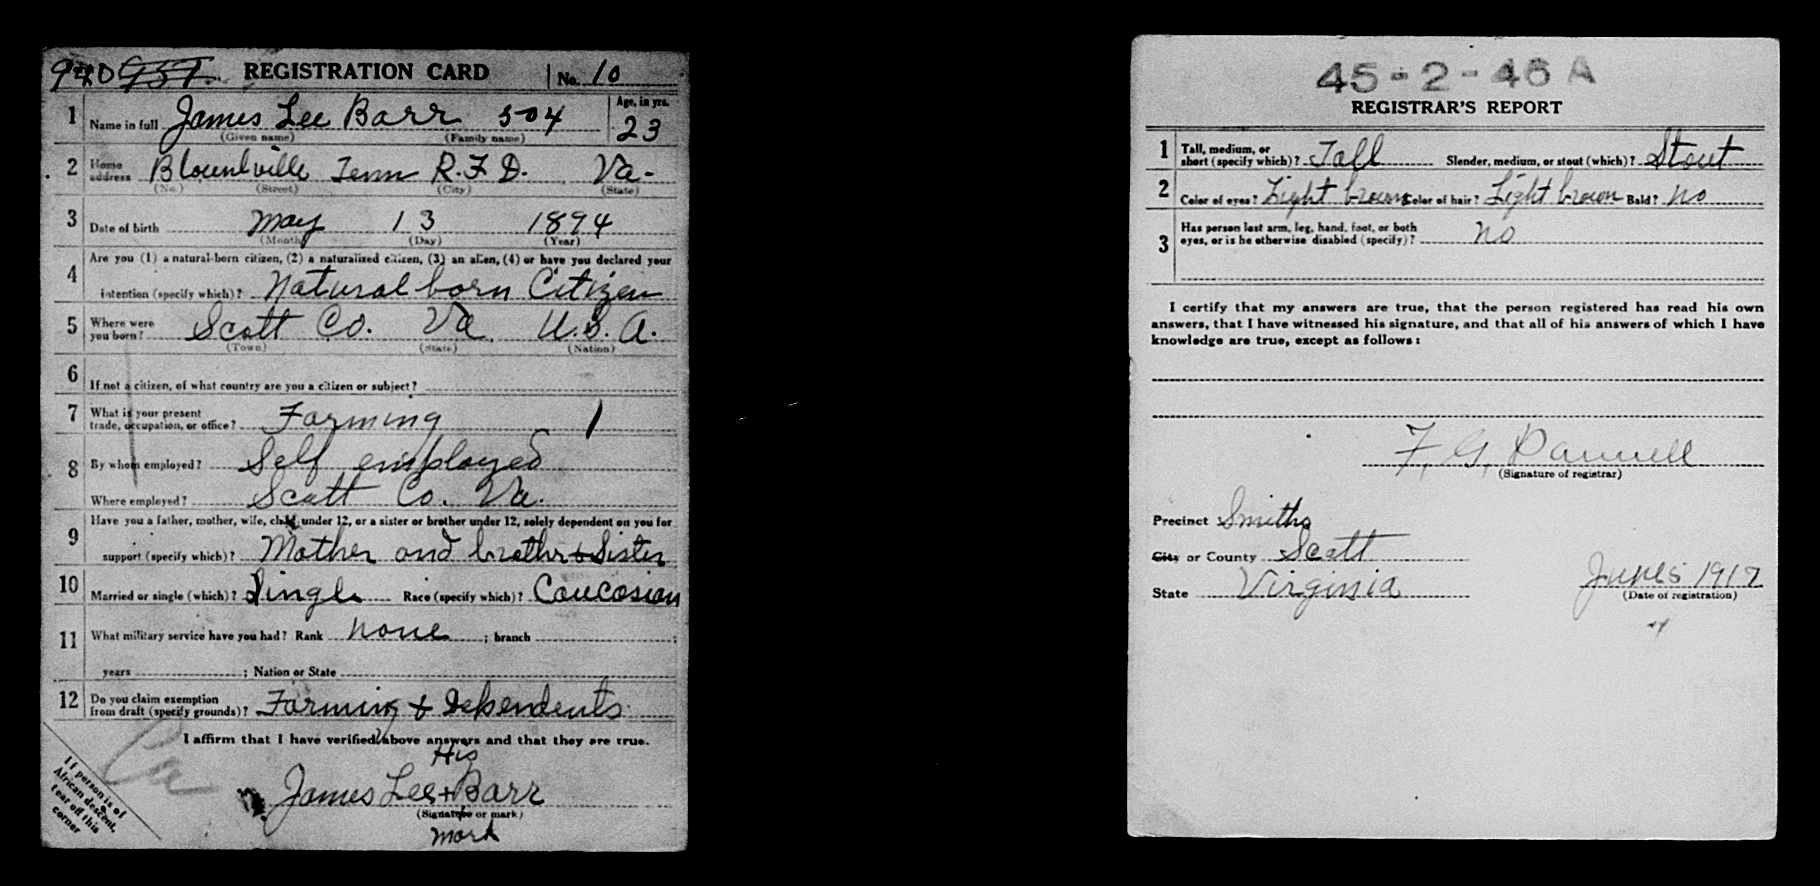 940 937. REGISTRATION CARD No. 10
1 Name in full James Lee Barr 504 Age, in yrs. 23
(Given name) (Family name)
2 Home address Blountville Tenn R.F.D. Va-
(No.) (Street) (City) (State)
3 Date of birth May 13 1894
(Month) (Day) (Year)
4 Are you (1) a natural-born citizen, (2) a naturalized citizen, (3) an alien, (4) or have you declared your
intention (specify which)? Natural born Citizen
5 Where were you born? Scott Co. Va. U.S.A.
(Town) (State) (Nation)
6 If not a citizen, of what country are you a citizen or subject?
7 What is your present
trade, occupation, or office? Farming 1
8 By whom employed? Self employed
Where employed? Scott Co. Va.
9 Have you a father, mother, wife, child under 12, or a sister or brother under 12, solely dependent on you for
support (specify which)? Mother and brother & Sister
10 Married or single (which)? Single Race (specify which)? Caucasian
11 What military service have you had? Rank none ; branch ;
years ; Nation or State
12 Do you claim exemption
from draft (specify grounds)? Farming & Dependents
I affirm that I have verified above answers and that they are true.
His
James Lee + Barr
(Signature or mark)
mark
If person is of
African descent,
tear off this
corner
45-2-46 A
REGISTRAR'S REPORT
1 Tall, medium, or
short (specify which)? Tall Slender, medium, or stout (which)? Stout
2 Color of eyes? Light brown Color of hair? Light brown Bald? No
3 Has person lost arm, leg, hand, foot, or both
eyes, or is he otherwise disabled (specify)? No
I certify that my answers are true, that the person registered has read his own
answers, that I have witnessed his signature, and that all of his answers of which I have
knowledge are true, except as follows:
F. G. Pannell
(Signature of registrar)
Precinct Smiths
City or County Scott
State Virginia June 5 1917
(Date of registration)